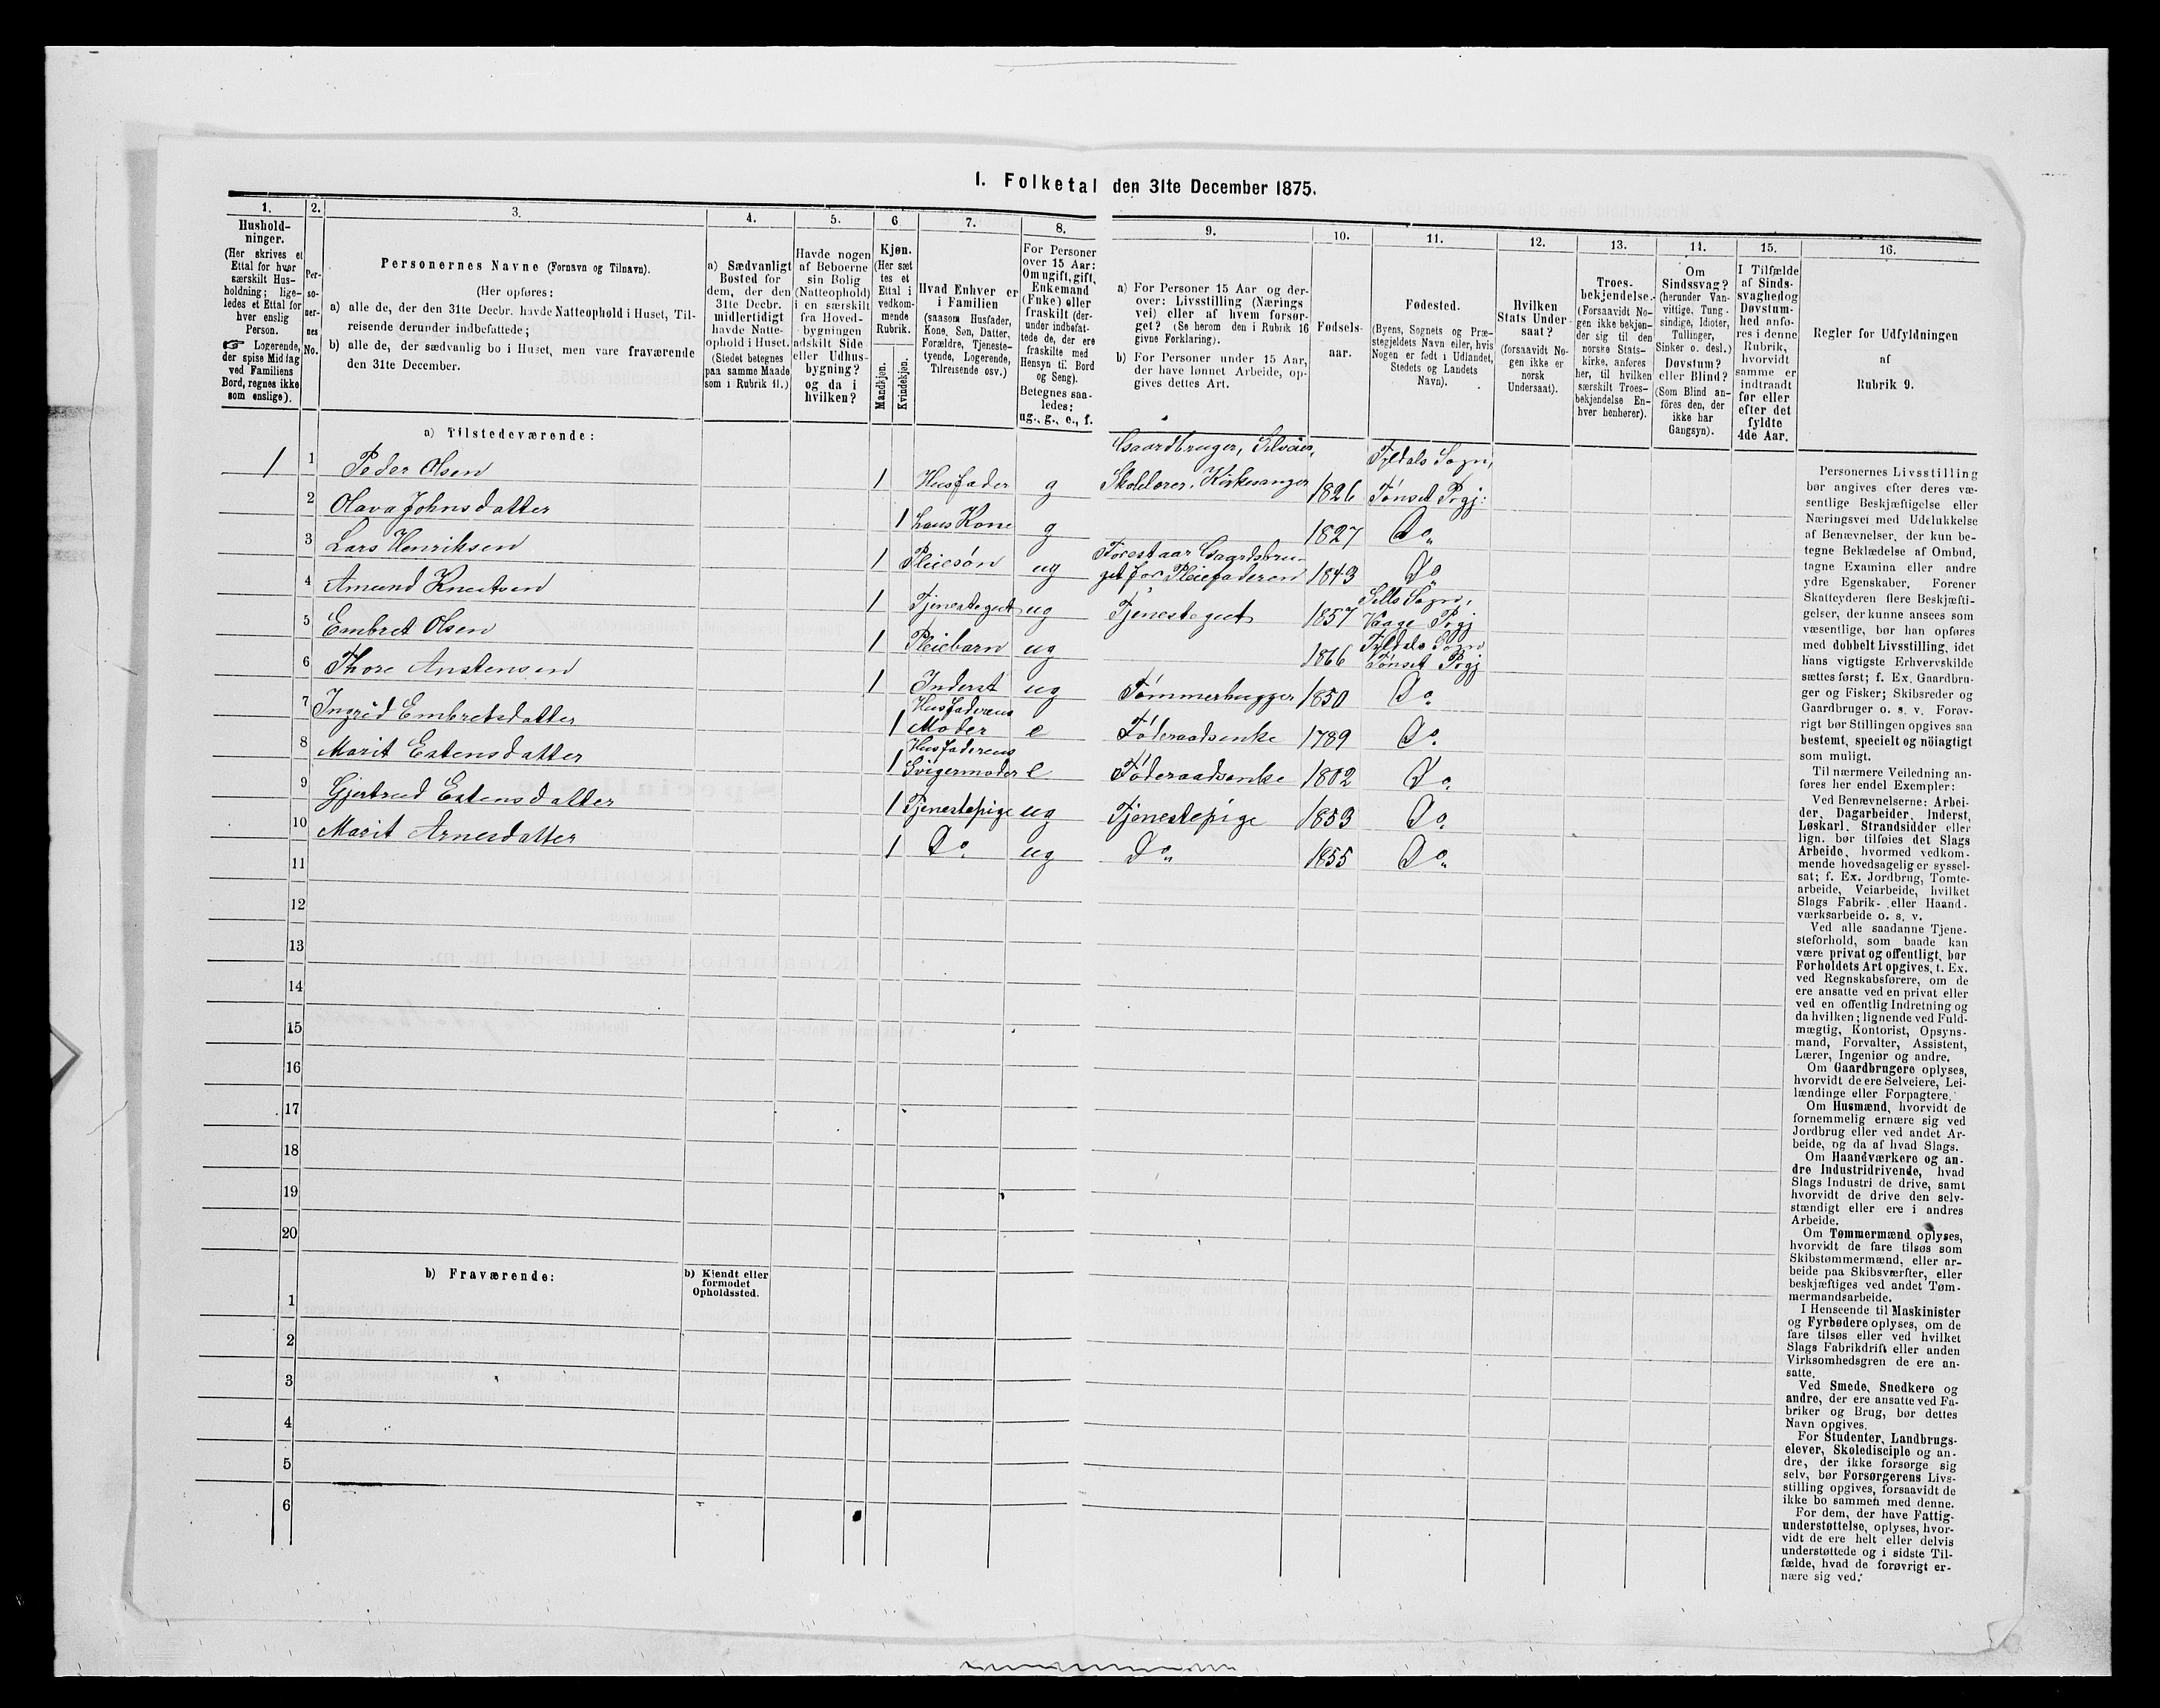 I. Folketal den 31te December 1875.
1.
2.
3.
4.
5.
6
7.
8.
9.
10.
11.
12.
13.
14.
15.
16.
Hushold-
ninger.
(Her skrives et
Ettal for hver
særskilt Hus-
holdning; lige-
ledes et Ettal for
hver enslig
Person.
☞ Logerende,
der spise Middag
ved Familiens
Bord, regnes ikke
som enslige).
Per-
so-
ner-
nes
No.
Personernes Navne (Fornavn og Tilnavn).
(Her opføres:
a) alle de, der den 31te Decbr. havde Natteophold i Huset, Til-
reisende derunder indbefattede;
b) alle de, der sædvanlig bo i Huset, men vare fraværende
den 31te December.
a) Sædvanligt
Bosted for
dem, der den
31te Decbr.
midlertidigt
havde Natte-
ophold i Huset.
(Stedet betegnes
paa samme Maade
som i Rubrik 11.)
Havde nogen
af Beboerne
sin Bolig
(Natteophold)
i en særskilt
fra Hoved-
bygningen
adskilt Side
eller Udhus-
bygning?
og da i
hvilken?
Kjøn.
(Her sæt
tes et
Ettal i
vedkom-
mende
Rubrik.
Mandkjøn.
Kvindekjøn.
Hvad Enhver er
i Familien
(saasom Husfader,
Kone, Søn, Datter,
Forældre, Tjeneste-
tyende, Logerende,
Tilreisende osv.)
For Personer
over 15 Aar:
Om ugift, gift,
Enkemand
(Enke) eller
fraskilt (der-
under indbefat-
tede de, der ere
fraskilte med
Hensyn til Bord
og Seng).
Betegnes saa-
ledes:
ug., g., e., f.
a) For Personer 15 Aar og der-
over: Livsstilling (Nærings
vei) eller af hvem forsør-
get? (Se herom den i Rubrik 16
givne Forklaring).
b) For Personer under 15 Aar,
der have lønnet Arbeide, op-
gives dettes Art.
Fødsels-
aar.
Fødested.
(Byens, Sognets og Præ-
stegjeldets Navn eller, hvis
Nogen er født i Udlandet,
Stedets og Landets
Navn).
Hvilken
Stats Under-
saat?
(forsaavidt No-
gen ikke er
norsk
Undersaat).
Troes-
bekjendelse.
(Forsaavidt No-
gen ikke bekjen-
der sig til den
norske Stats-
kirke, anføres
her, til hvilken
særskilt Troes-
bekjendelse En-
hver henhører).
Om
Sindssvag?
(herunder Van-
vittige, Tung-
sindige, Idioter,
Tullinger,
Sinker o. desl.)
Døvstum?
eller Blind?
(Som Blind an-
føres den, der
ikke har
Gangsyn).
I Tilfælde
af Sinds-
svaghed og
Døvstum-
hed anfø-
res i denne
Rubrik,
hvorvidt
samme er
indtraadt
før eller
efter det
fyldte
4de Aar.
Regler for Udfyldningen
af
Rubrik 9.
a) Tilstedeværende:
Gaardbruger, Selveier, Tyldals Sogn,
1 1 Peder Olsen 1 Husfader g Skolelærer, Kirkesanger 1826 Tønset Prgj:
2 Olava Johnsdatter 1 hans Kone g 1827 Do
3 Lars Henriksen 1 Pleiesøn ug Forestaar Gaardsbru-
get for Pleiefaderen 1843 Do
4 Amund Knutsen 1 Tjenestegut ug Tjenestegut 1857 Sells Sogn,
Vaage Prgj
5 Embret Olsen 1 Pleiebarn ug 1866 Tyldals Sogn
Tønset Prgj
6 Thore Anstensen 1 Inderst ug Tømmerhugger 1850 Do.
7 Ingrid Embretsdatter 1 Husfaderens
Moder e Føderaadsenke 1789 Do.
8 Marit Estensdatter 1 Husfaderens
Svigermoder e Føderaadsenke 1802 Do.
9 Gjertrud Estensdatter 1 Tjenestepige ug Tjenestepige 1853 Do.
10 Marit Arnesdatter 1 Do. ug Do 1855 Do
11
12
13
14
15
16
17
18
19
20
b) Fraværende:
b) Kjendt eller
formodet
Opholdssted.
1
2
3
4
5
6
Personernes Livsstilling
bør angives efter deres væ-
sentlige Beskjæftigelse eller
Næringsvei med Udelukkelse
af Benævnelser, der kun be-
tegne Beklædelse af Ombud,
tagne Examina eller andre
ydre Egenskaber. Forener
Skatteyderen flere Beskjæfti-
gelser, der kunne ansees som
væsentlige, bør han opføres
med dobbelt Livsstilling, idet
hans vigtigste Erhvervskilde
sættes først; f. Ex. Gaardbru-
ger og Fisker; Skibsreder og
Gaardbruger o. s. v. Forøv-
rigt bør Stillingen opgives saa
bestemt, specielt og nöiagtigt
som muligt.
Til nærmere Veiledning an-
føres her endel Exempler:
Ved Benævnelserne: Arbei-
der, Dagarbeider, Inderst,
Løskarl, Strandsidder eller
lign. bør tilføies det Slags
Arbeide, hvormed vedkom-
mende hovedsagelig er syssel-
sat; f. Ex. Jordbrug, Tomte-
arbeide, Veiarbeide, hvilket
Slags Fabrik- eller Haand-
værksarbeide o. s. v.
Ved alle saadanne Tjene-
steforhold, som baade kan
være privat og offentligt, bør
Forholdets Art opgives, t. Ex.
ved Regnskabsførere, om de
ere ansatte ved en privat eller
ved en offentlig Indretning og
da hvilken; lignende ved Fuld-
mægtig, Kontorist, Opsyns-
mand, Forvalter, Assistent,
Lærer, Ingeniør og andre.
Om Gaardbrugere oplyses,
hvorvidt de ere Selveiere, Lei-
lændinge eller Forpagtere.
Om Husmænd, hvorvidt de
fornemmelig ernære sig ved
Jordbrug eller ved andet Ar-
beide, og da af hvad Slags.
Om Haandværkere og an-
dre Industridrivende, hvad
Slags Industri de drive, samt
hvorvidt de drive den selv-
stændigt eller ere i andres
Arbeide.
Om Tømmermænd oplyses,
hvorvidt de fare tilsøs som
Skibstømmermænd, eller ar-
beide paa Skibsværfter, eller
beskjæftiges ved andet Tøm-
mermandsarbeide.
I Henseende til Maskinister
og Fyrbødere oplyses, om de
fare tilsøs eller ved hvilket
Slags Fabrikdrift eller anden
Virksomhedsgren de ere an-
satte.
Ved Smede, Snedkere og
andre, der ere ansatte ved Fa-
briker og Brug, bør dettes
Navn opgives.
For Studenter, Landbrugs-
elever, Skoledisciple og an-
dre, der ikke forsørge sig
selv, bør Forsørgerens Livs-
stilling opgives, forsaavidt de
ikke bo sammen med denne.
For dem, der have Fattig-
understøttelse, oplyses, hvor-
vidt de ere helt eller delvis
understøttede og i sidste Til-
fælde, hvad de forøvrigt er-
nære sig ved.